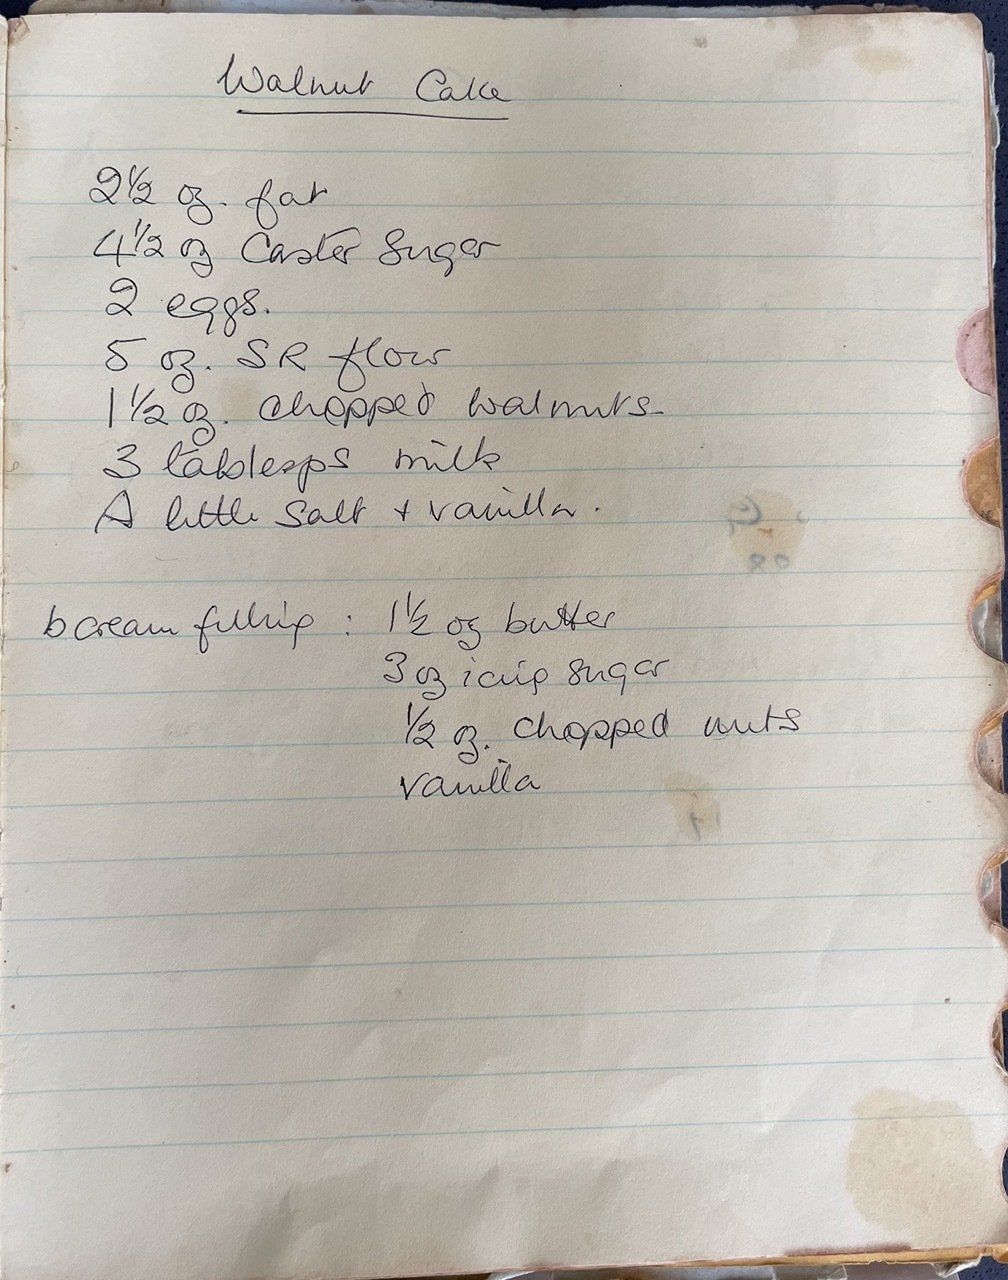 Walnut Cake
2½ oz. fat
4½ oz Caster Sugar
2 eggs.
5 oz. SR flour
1½ oz. chopped walnuts
3 tablesps milk
A little salt + vanilla.
b cream filling : 1½ oz butter
3 oz icing sugar
½ oz. chopped nuts
vanilla